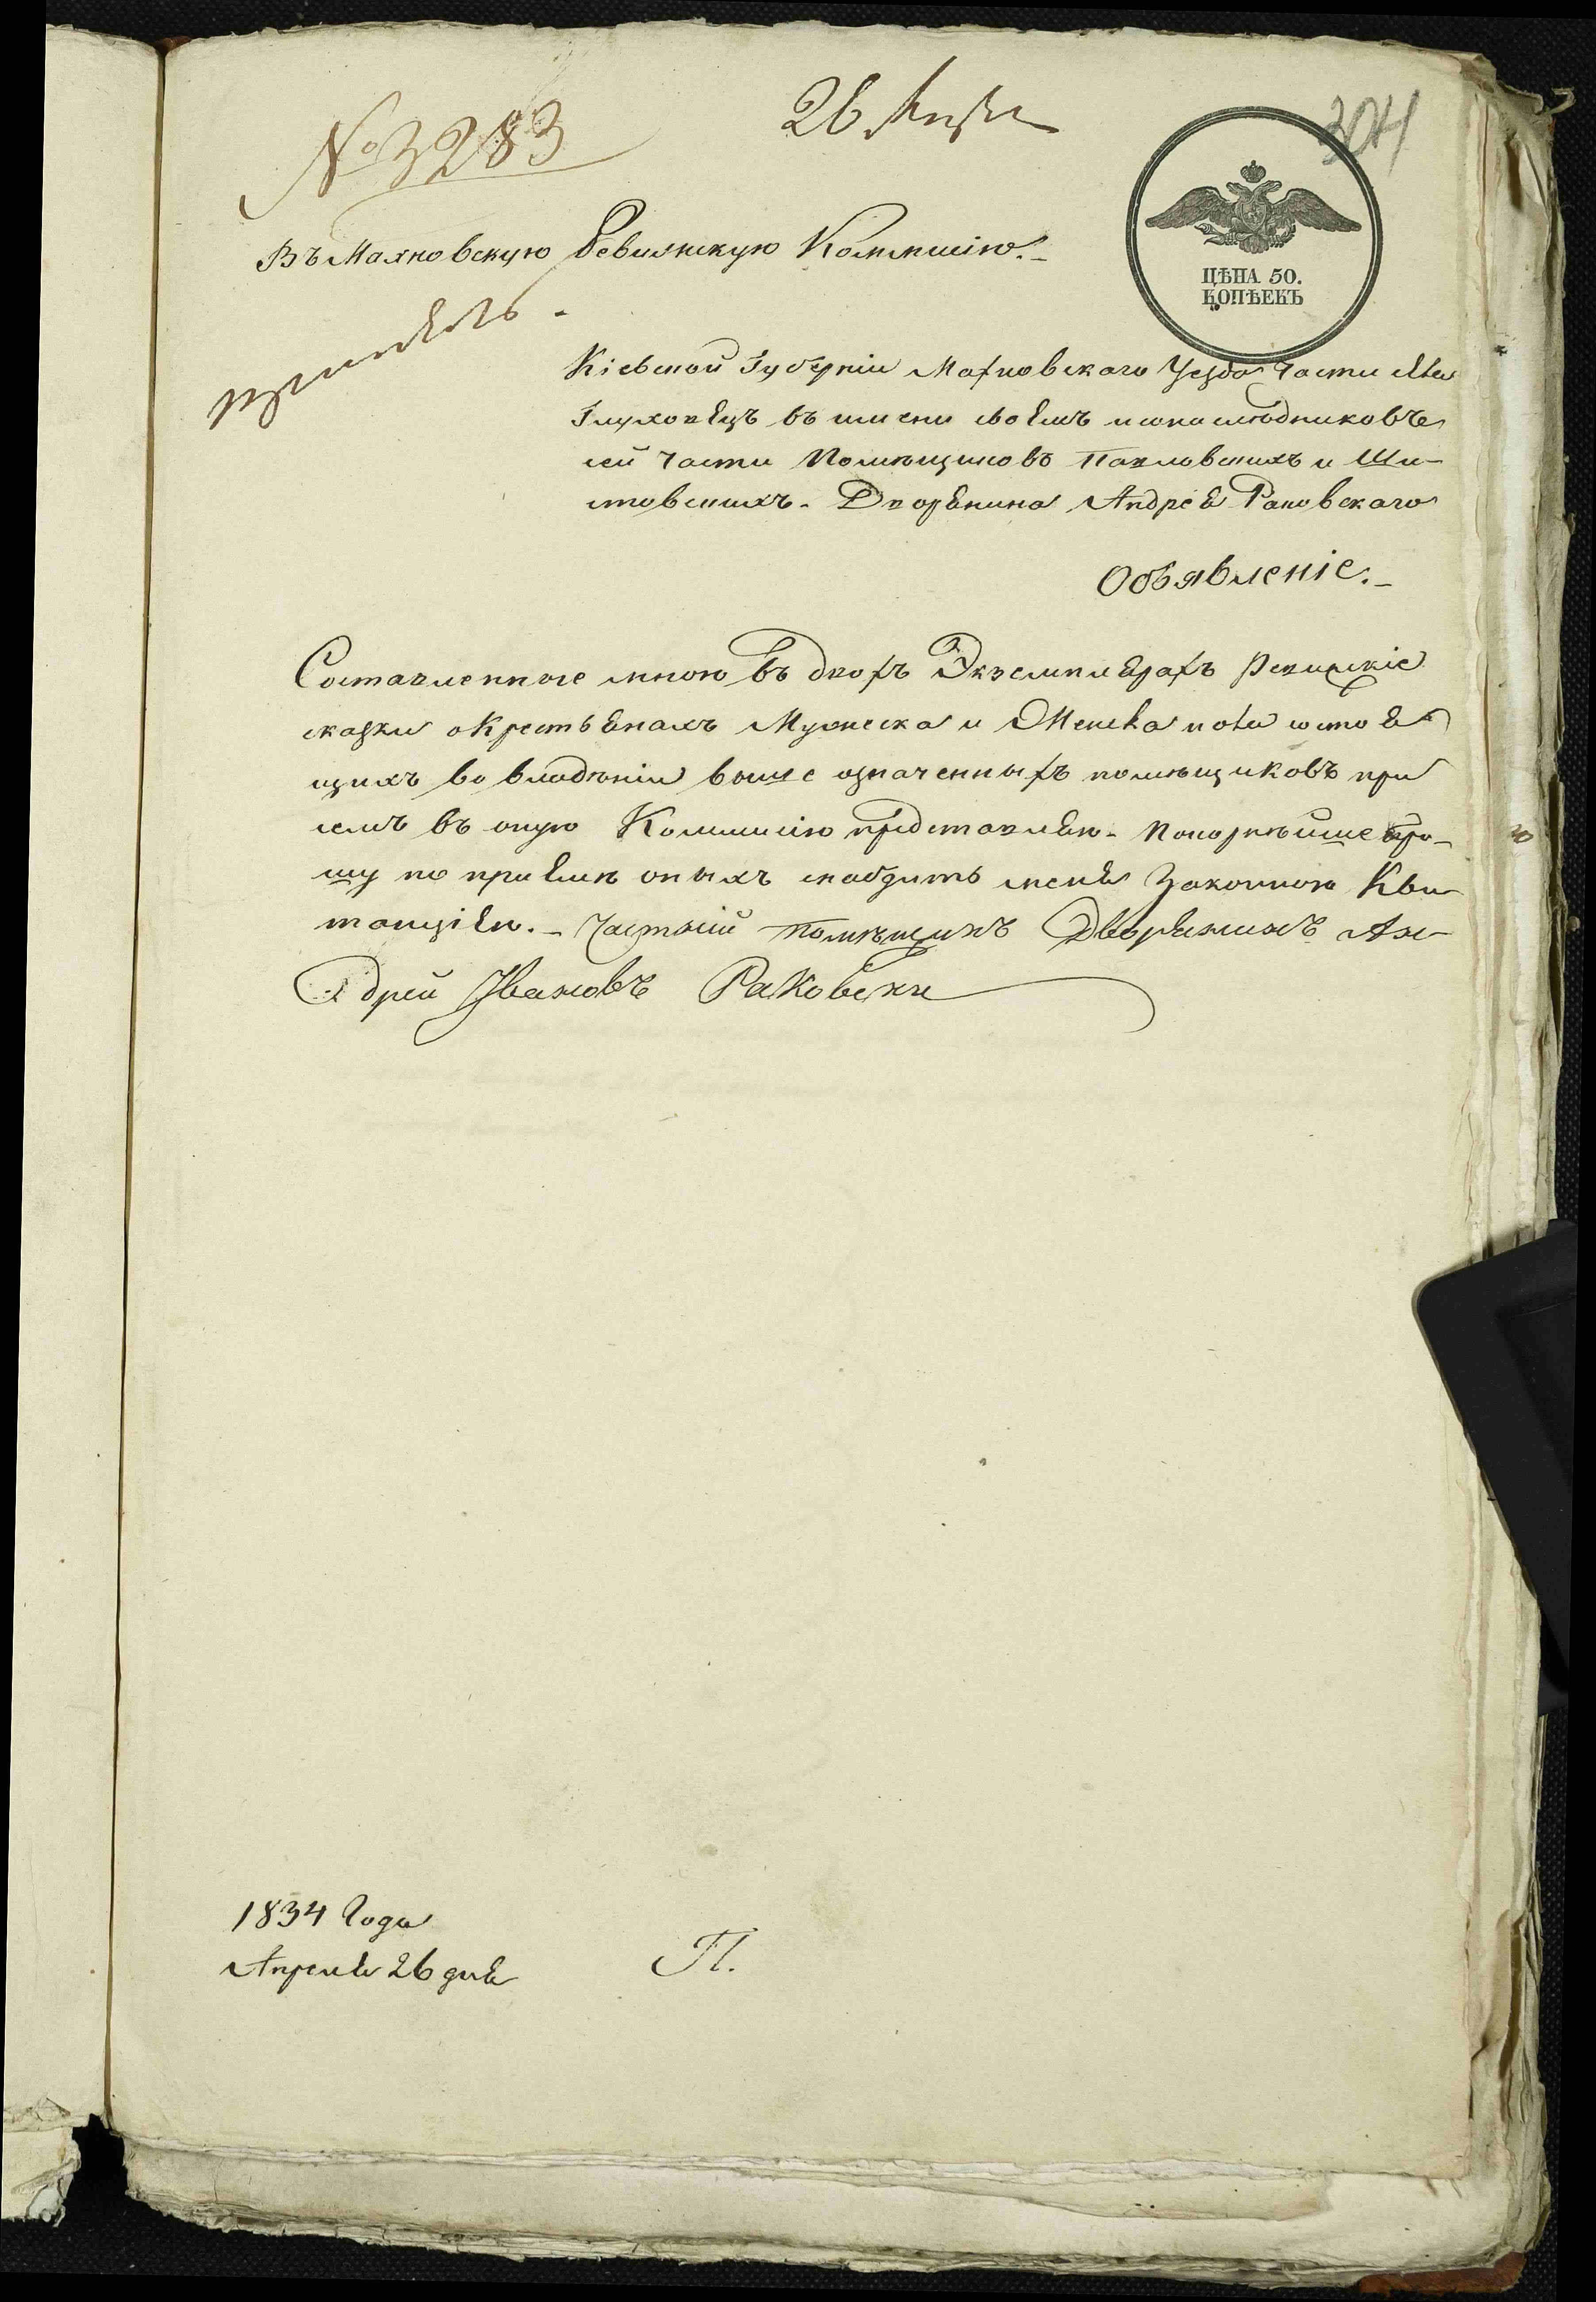 № 3283
26 Апрѣля
304
ЦѢНА 50.
КОПѢЕКЪ
Въ Махновскую Ревизскую Коммисію.-
Кіевской Губерніи Махновскаго Уезда Части села
Глуховецъ въ имени своемъ и сонаследниковъ
сей части Помѣщиковъ Павловскихъ и
Дворянина Андрея Раковскаго
Объявленіе.-
Составленные мною въ двохъ Экземплярахъ Ревизскіе
сказки о Крестьянахъ Мужеска и Женска пола состоя
щихъ во владѣніи выше означенныхъ помѣщиковъ при
семъ въ оную Коммисію представляю. Покорнѣйше про-
шу по приемѣ оныхъ снабдить меня Законною Кви
танціею.- Частній помѣщикъ Дворянинъ Ан-
дрей Ивановъ Раковски
1834 Года
Апреля 26 дня
П.